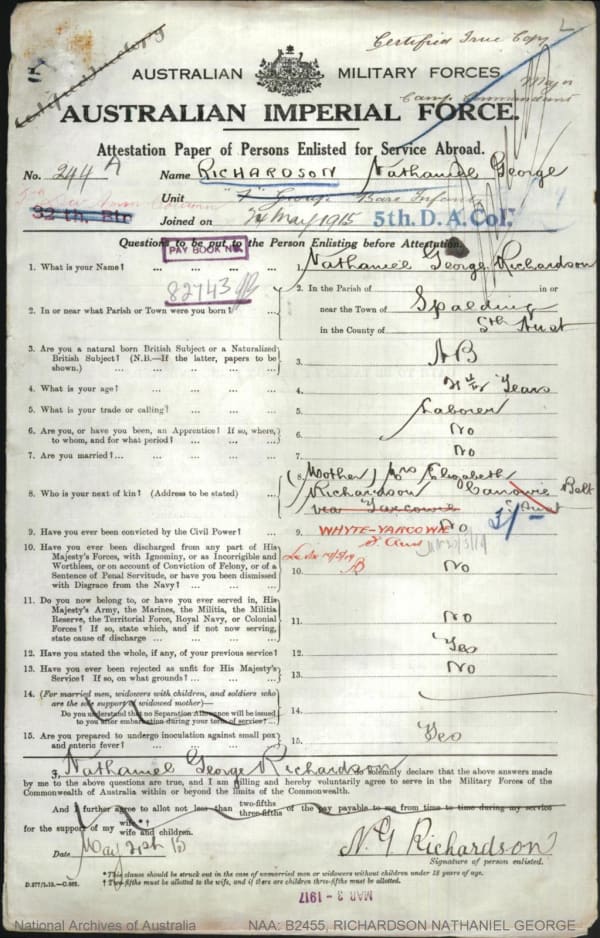 Certified True Copy
AUSTRALIAN MILITARY FORCES.
Major
Camp Commandant
AUSTRALIAN IMPERIAL FORCE.
Attestation Paper of Persons Enlisted for Service Abroad.
No. 244 A Name RICHARDSON Nathaniel George
Unit "F" Group Base Infant
32nd Btn
Joined on 24 May 1915 5th. D.A. Col.
Questions to be put to the Person Enlisting before Attestation.
PAY BOOK No.
82743
1. What is your Name? ... 1. Nathaniel George Richardson
2. In or near what Parish or Town were you born? ... 2. In the Parish of in or
near the Town of Spalding
in the County of Sth Aust
3. Are you a natural born British Subject or a Naturalized
British Subject? (N.B.—If the latter, papers to be
shown.) ... 3. NB
4. What is your age? ... 4. Years
5. What is your trade or calling? ... 5. Laborer
6. Are you, or have you been, an Apprentice? If so, where,
to whom, and for what period? ... 6. No
7. Are you married? ... 7. No
8. Who is your next of kin? (Address to be stated) ... 8. (Mother) Mrs Elizabeth
Richardson Canowie Belt
via Yarcowie S. Aust
WHYTE-YARCOWIE
S Aus
9. Have you ever been convicted by the Civil Power? ... 9. No
10. Have you ever been discharged from any part of His
Majesty's Forces, with Ignominy, or as Incorrigible and
Worthless, or on account of Conviction of Felony, or of a
Sentence of Penal Servitude, or have you been dismissed
with Disgrace from the Navy? ... 10. No
11. Do you now belong to, or have you ever served in, His
Majesty's Army, the Marines, the Militia, the Militia
Reserve, the Territorial Force, Royal Navy, or Colonial
Forces? If so, state which, and if not now serving,
state cause of discharge ... 11. No
12. Have you stated the whole, if any, of your previous service? 12. Yes
13. Have you ever been rejected as unfit for His Majesty's
Service? If so, on what grounds? ... 13. No
14. (For married men, widowers with children, and soldiers who
are the sole support of widowed mother)—
Do you understand that no Separation Allowance will be issued
to you after embarkation during your term of service? ... 14.
15. Are you prepared to undergo inoculation against small pox
and enteric fever? ... 15. Yes
I, Nathaniel George Richardson do solemnly declare that the above answers made
by me to the above questions are true, and I am willing and hereby voluntarily agree to serve in the Military Forces of the
Commonwealth of Australia within or beyond the limits of the Commonwealth.
And I further agree to allot not less than two-fifths three-fifths of the pay payable to me from time to time during my service
for the support of my wife*† wife and children.
Date May 24th 15 N. G Richardson
Signature of person enlisted.
* This clause should be struck out in the case of unmarried men or widowers without children under 18 years of age.
† Two-fifths must be allotted to the wife, and if there are children three-fifths must be allotted.
MAR 3 - 1917
National Archives of Australia NAA: B2455, RICHARDSON NATHANIEL GEORGE